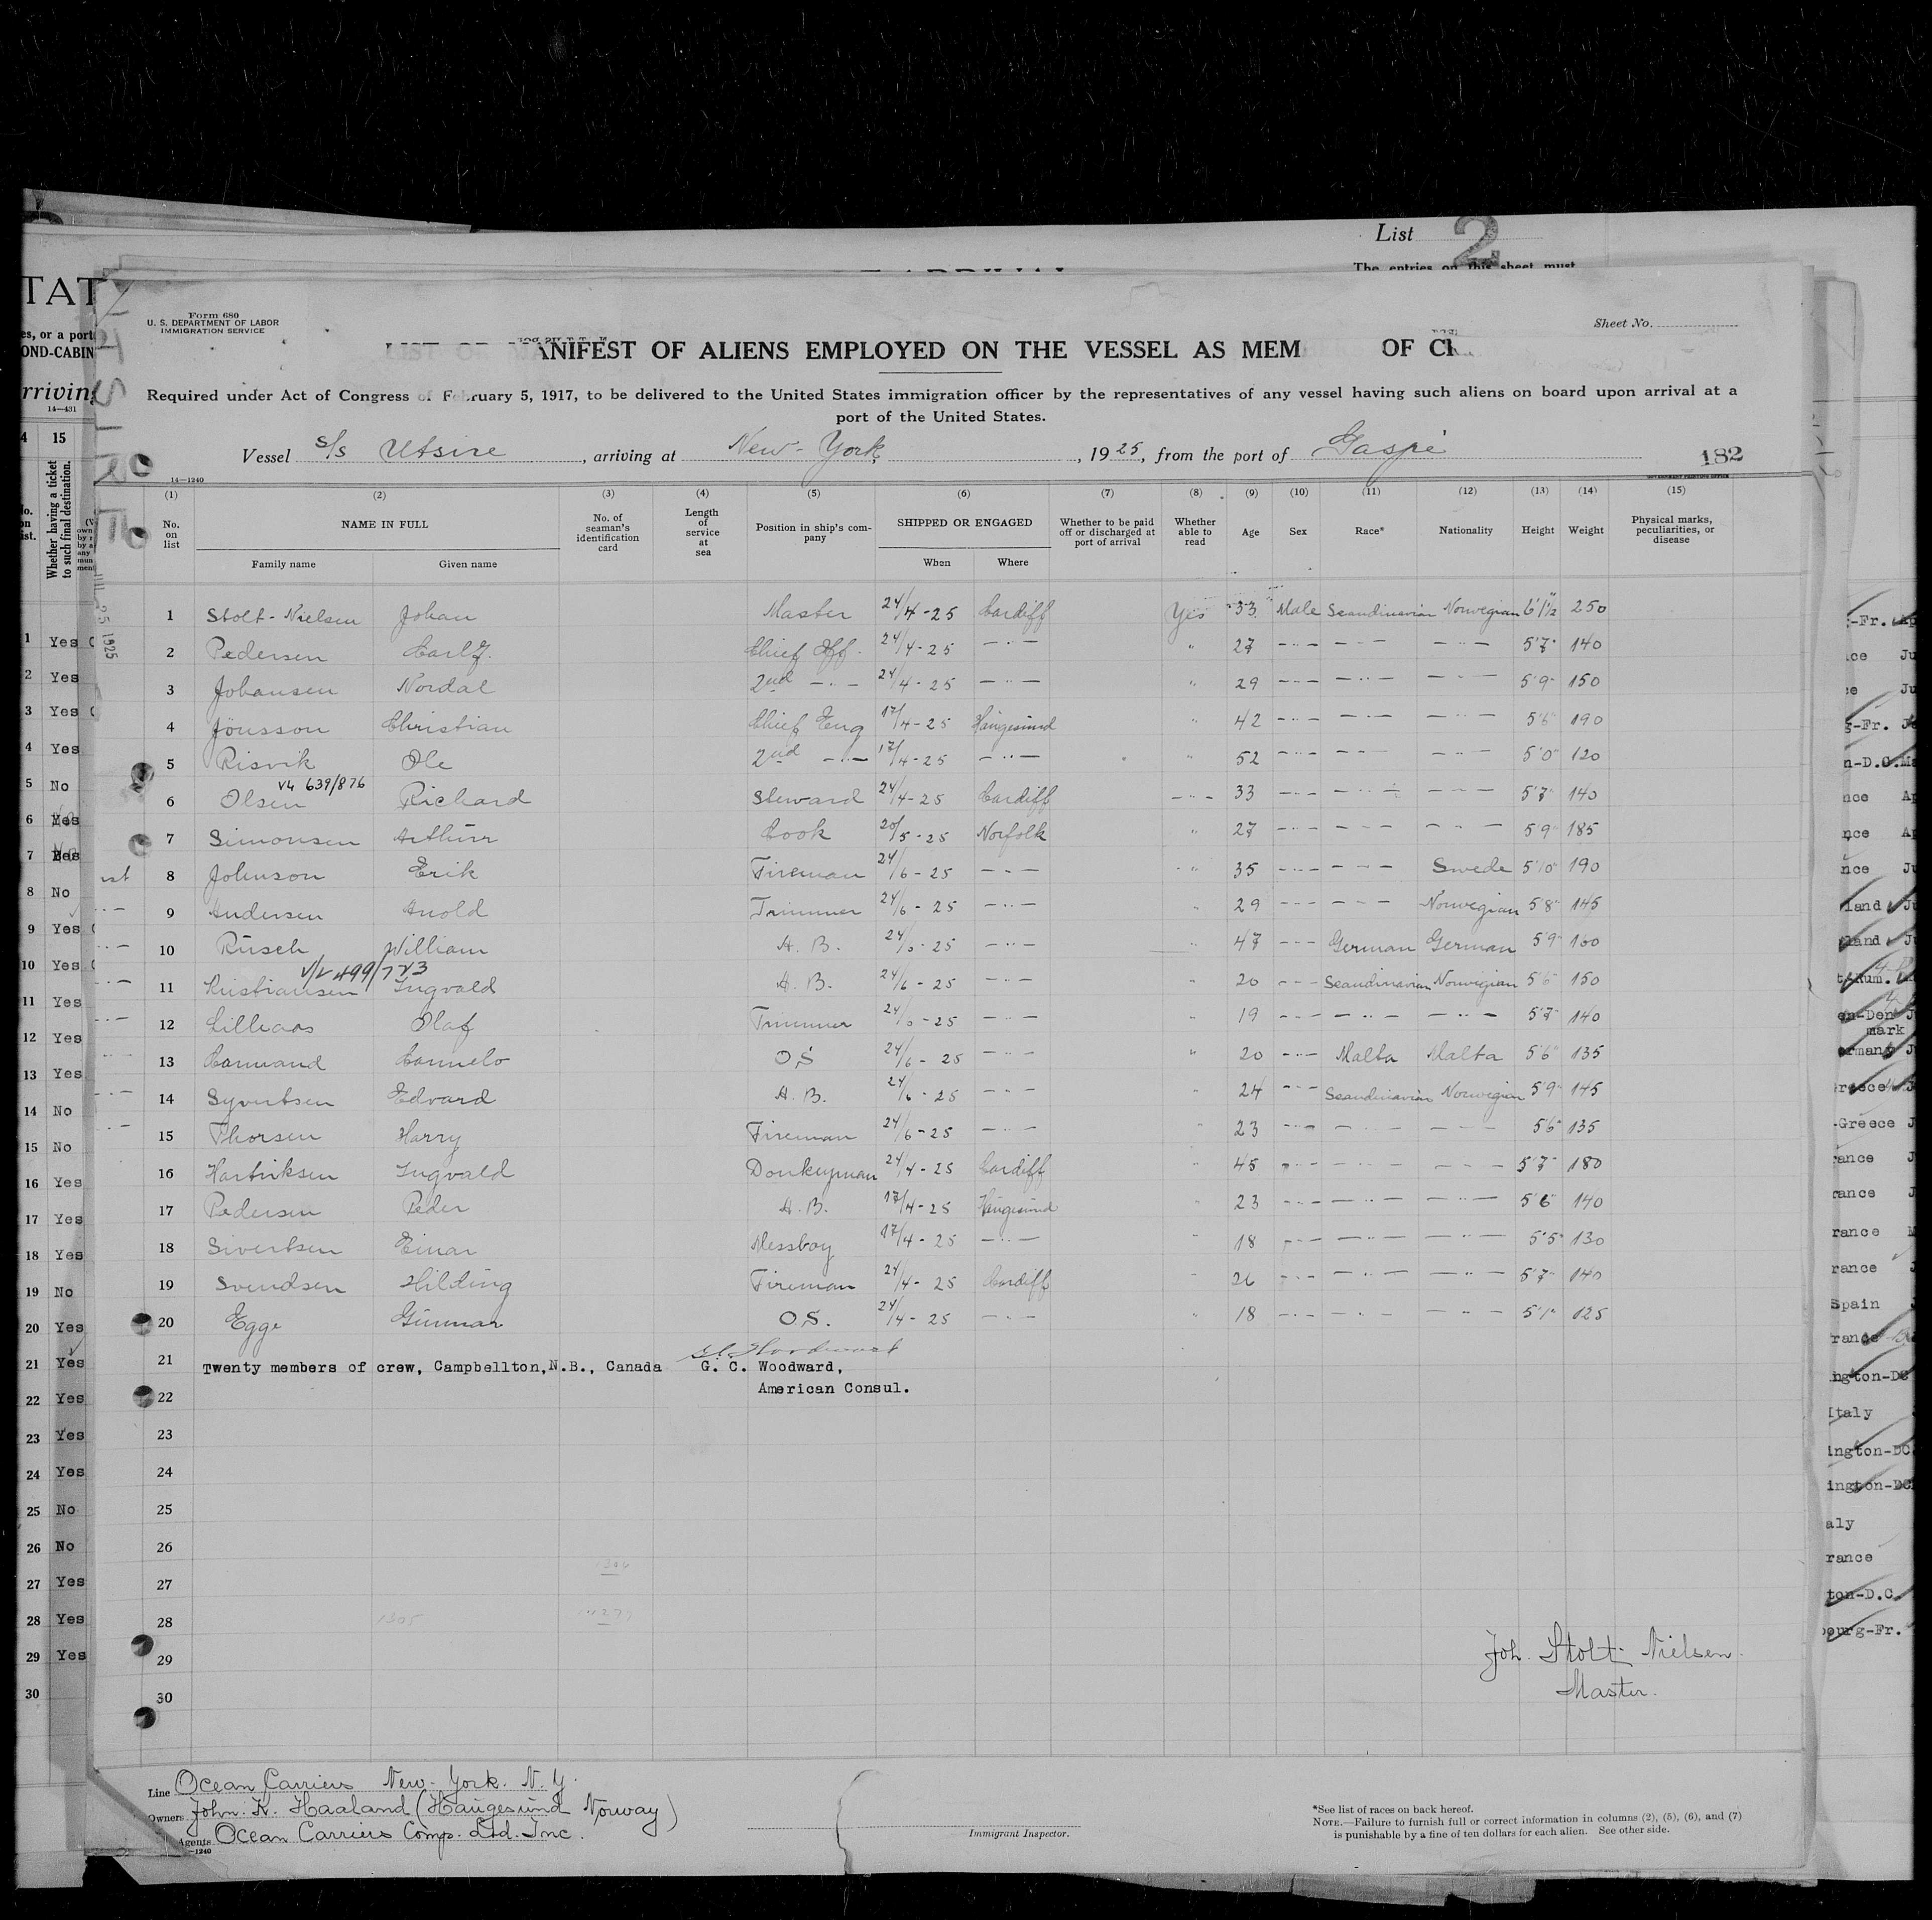 List 2
The entries on this sheet must
Form 680
U. S. DEPARTMENT OF LABOR
IMMIGRATION SERVICE
Sheet No.
LIST OR MANIFEST OF ALIENS EMPLOYED ON THE VESSEL AS MEM OF CR
Required under Act of Congress of February 5, 1917, to be delivered to the United States immigration officer by the representatives of any vessel having such aliens on board upon arrival at a
port of the United States.
Vessel S/S Utsire, arriving at New-York, 1925, from the port of Gaspé
182
14—1240
(1) (2) (3) (4) (5) (6) (7) (8) (9) (10) (11) (12) (13) (14) (15)
No. on list NAME IN FULL No. of seaman's identification card Length of service at sea Position in ship's company SHIPPED OR ENGAGED Whether to be paid off or discharged at port of arrival Whether able to read Age Sex Race* Nationality Height Weight Physical marks, peculiarities, or disease
Family name Given name When Where
1 Stolt-Nielsen Johan Master 24/4-25 Cardiff Yes 33 Male Scandinavian Norwegian 6'1½" 250
2 Pedersen Carl J. Chief Off. 24/4-25 —"— " 27 —"— —"— —"— 5'7" 140
3 Johansen Nordal 2nd —"— 24/4-25 —"— " 29 —"— —"— —"— 5'9" 150
4 Jönsson Christian Chief Eng 17/4-25 Haugesund " 42 —"— —"— —"— 5'6" 190
5 Risvik Ole 2nd —"— 17/4-25 —"— " 52 —"— —"— —"— 5'0" 120
V4 639/876
6 Olsen Richard Steward 24/4-25 Cardiff —"— 33 —"— —"— —"— 5'7" 140
7 Simonsen Arthur Cook 20/5-25 Norfolk " 27 —"— —"— —"— 5'9" 185
8 Johnson Erik Fireman 24/6-25 —"— " 35 —"— —"— Swede 5'10" 190
9 Andersen Anold Trimmer 24/6-25 —"— " 29 —"— —"— Norwegian 5'8" 145
10 Rusch William A. B. 24/6-25 —"— " 47 —"— German German 5'9" 160
V/L 499/723
11 Kristiansen Ingvald A. B. 24/6-25 —"— " 20 —"— Scandinavian Norwegian 5'6" 150
12 Lilleaas Olaf Trimmer 24/6-25 —"— " 19 —"— —"— —"— 5'7" 140
13 Carmelo OS 24/6-25 —"— " 20 —"— Malta Malta 5'6" 135
14 Syvertsen Edvard A. B. 24/6-25 —"— " 24 —"— Scandinavian Norwegian 5'9" 145
15 Thorsen Harry Fireman 24/6-25 —"— " 23 —"— —"— —"— 5'6" 135
16 Ingvald Donkeyman 24/4-25 Cardiff " 45 —"— —"— —"— 5'7" 180
17 Pedersen Peder A. B. 17/4-25 Haugesund " 23 —"— —"— —"— 5'6" 140
18 Sivertsen Einar Messboy 17/4-25 —"— " 18 —"— —"— —"— 5'5" 130
19 Svendsen Hilding Fireman 24/4-25 Cardiff " 26 —"— —"— —"— 5'7" 140
20 Egge Gunnar O.S. 24/4-25 —"— " 18 —"— —"— —"— 5'1" 125
21 Twenty members of crew, Campbellton, N.B., Canada G. C. Woodward,
22 American Consul.
23
24
25
26
27
28 1305
29
30
Joh. Stolt-Nielsen
Master.
Line Ocean Carriers New-York. N.Y.
Owners John. K. Haaland (Haugesund Norway)
Agents Ocean Carriers Comp. Ltd. Inc.
Immigrant Inspector.
*See list of races on back hereof.
NOTE.—Failure to furnish full or correct information in columns (2), (5), (6), and (7)
is punishable by a fine of ten dollars for each alien. See other side.